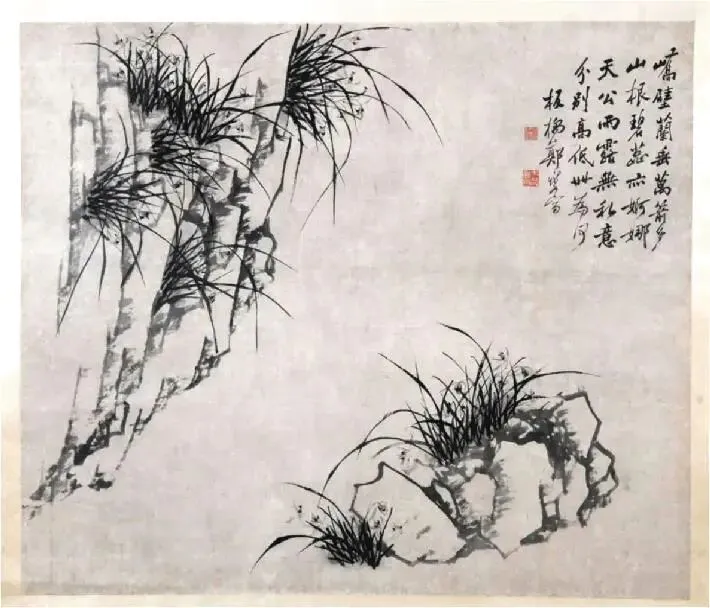 峭壁蘭垂萬箭多
山根碧蕊亦婀娜
天公雨露無私意
分別高低世為何
板橋鄭燮